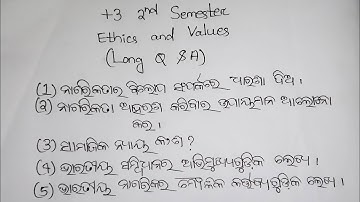 +3 2nd Semester
Ethics and Values
(Long Q & A)
(1) ନାଗରିକତାର ବିଲୋପ ସଂପର୍କରେ ଧାରଣା ଦିଅ ।
(2) ନାଗରିକତା ଆହରଣ କରିବାର ଉପାୟମାନ ଆଲୋଚନା
କର ।
(3) ସାମାଜିକ ନ୍ୟାୟ କ'ଣ ?
(4) ଭାରତୀୟ ସମ୍ବିଧାନର ଆଭିମୁଖ୍ୟଗୁଡ଼ିକ ଲେଖ ।
(5) ଭାରତୀୟ ନାଗରିକର ମୌଳିକ କର୍ତ୍ତବ୍ୟଗୁଡ଼ିକ ଲେଖ ।